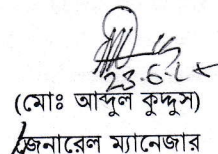 23-6-2
(মোঃ আব্দুল কুদ্দুস)
জেনারেল ম্যানেজার